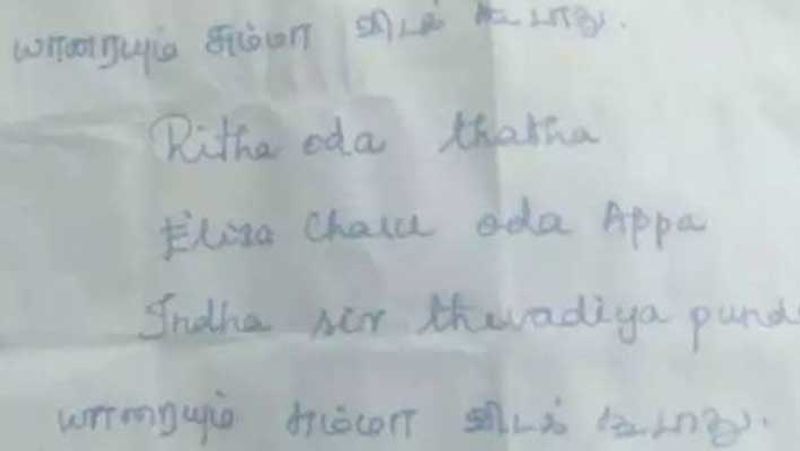 யாரையும் சும்மா விடக் கூடாது.
Ritha oda thatha
Eliza Charu oda Appa
Indha sir thevadiya pund
யாரையும் சும்மா விடக் கூடாது.